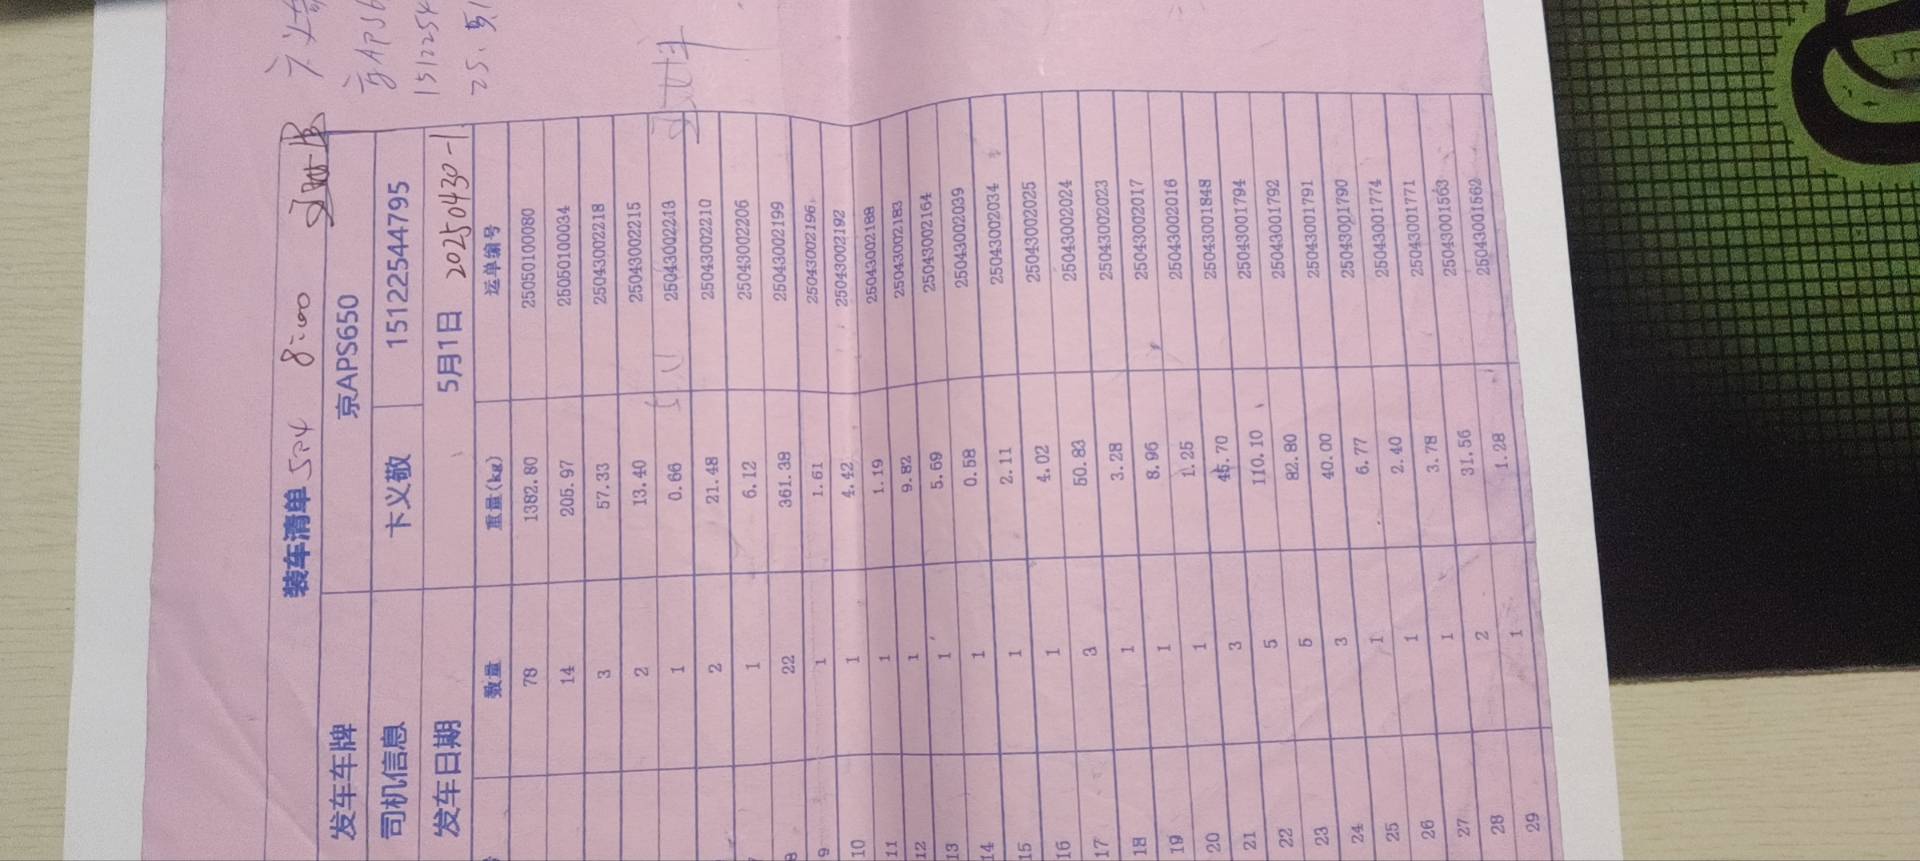 装车清单 8:00
发车车牌 京APS650
司机信息 卞义敬 15122544795
发车日期 5月1日 20250430-1
数量 重量(kg) 运单编号
78 1382.80 25050100080
14 205.97 25050100034
3 57.33 25043002218
2 13.40 25043002215
1 0.66 25043002213
2 21.48 25043002210
1 6.12 25043002206
8 22 361.38 25043002199
9 1 1.61 25043002196
10 1 4.42 25043002192
11 1 1.19 25043002188
12 1 9.82 25043002183
13 1 5.69 25043002164
14 1 0.58 25043002039
15 1 2.11 25043002034
16 1 4.02 25043002025
17 3 50.83 25043002024
18 1 3.28 25043002023
19 1 8.96 25043002017
20 1 1.25 25043002016
21 3 45.70 25043001848
22 5 110.10 25043001794
23 5 82.80 25043001792
24 3 40.00 25043001791
25 1 6.77 25043001790
26 1 2.40 25043001774
27 1 3.78 25043001771
28 2 31.56 25043001563
29 1 1.28 25043001562